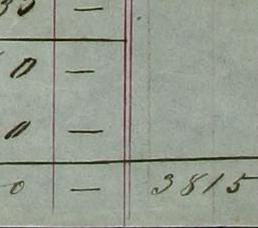 35 —
0 —
0 —
0 — 3815